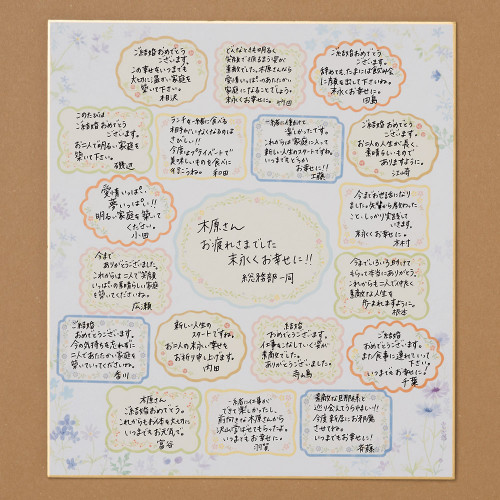 ご結婚おめでとう
ございます。
この幸せをいつまでも
大切に温かい家庭を
築いて下さい。
相沢
どんなときも明るく
笑顔で頑張る姿が
素敵でした。木原さんなら
愛情いっぱいのあたたかい
家庭になることでしょう。
末永くお幸せに。
ご結婚おめでとう
ございます。
辞めても、たまには飲み会
に顔を出して下さいね。
末永くお幸せに。
田島
このたびは
ご結婚おめでとう
ございます。
お二人で明るい家庭を
築いて下さい。
磯辺
ランチを一緒に食べる
相手がいなくなるのは
さびしい!!
今度はプライベートで
美味しいものを食べに
行きましょうね。和田
一緒に働けて
楽しかったです。
これからは家庭に入って
新しい人生のスタートですね。
いつまでもどうか
お幸せに!!
工藤
ご結婚おめでとう
ございます。
お二人の人生が長く、
素晴らしいもので
ありますように。
江崎
愛情いっぱい
夢いっぱい!!
明るい家庭を築いて
ください。
小田
木原さん
お疲れさまでした
末永くお幸せに!!
総務部一同
今までお世話になり
ました。先輩から教わった
こと・しっかり実践して
いきます。
末永くお幸せに。
木村
今まで
ありがとうございました。
これからは二人で笑顔
いっぱいの素晴らしい家庭
を築いてください。
広瀬
今までいろいろ助けて
もらって本当にありがとう。
これからも二人で仲良く
素敵な人生を
歩まれますように。
ご結婚
おめでとうございます。
今の気持ちを忘れずに
二人であたたかい家庭を
築いていってくださいね。
香川
新しい人生の
スタートですね。
お二人の末永い幸せを
お祈り申し上げます。
内田
ご結婚
おめでとうございます。
仕事をこなしていく姿が
素敵でした。
ありがとうございました。
寺島
ご結婚
おめでとうございます。
また食事に連れていって
下さい!
いつまでもお幸せに!
千葉
木原さん
ご結婚おめでとう。
これからもお体を大切に
いつまでもお元気で。
富谷
一緒に仕事が
できて楽しかったし、
前向きな木原さんから
沢山学ばせてもらったよ。
いつまでもお幸せに。
羽賀
素敵な旦那様と
巡り会えてうらやましい!!
今度新居にお邪魔
させてね。
いつまでもお幸せに!
斉藤